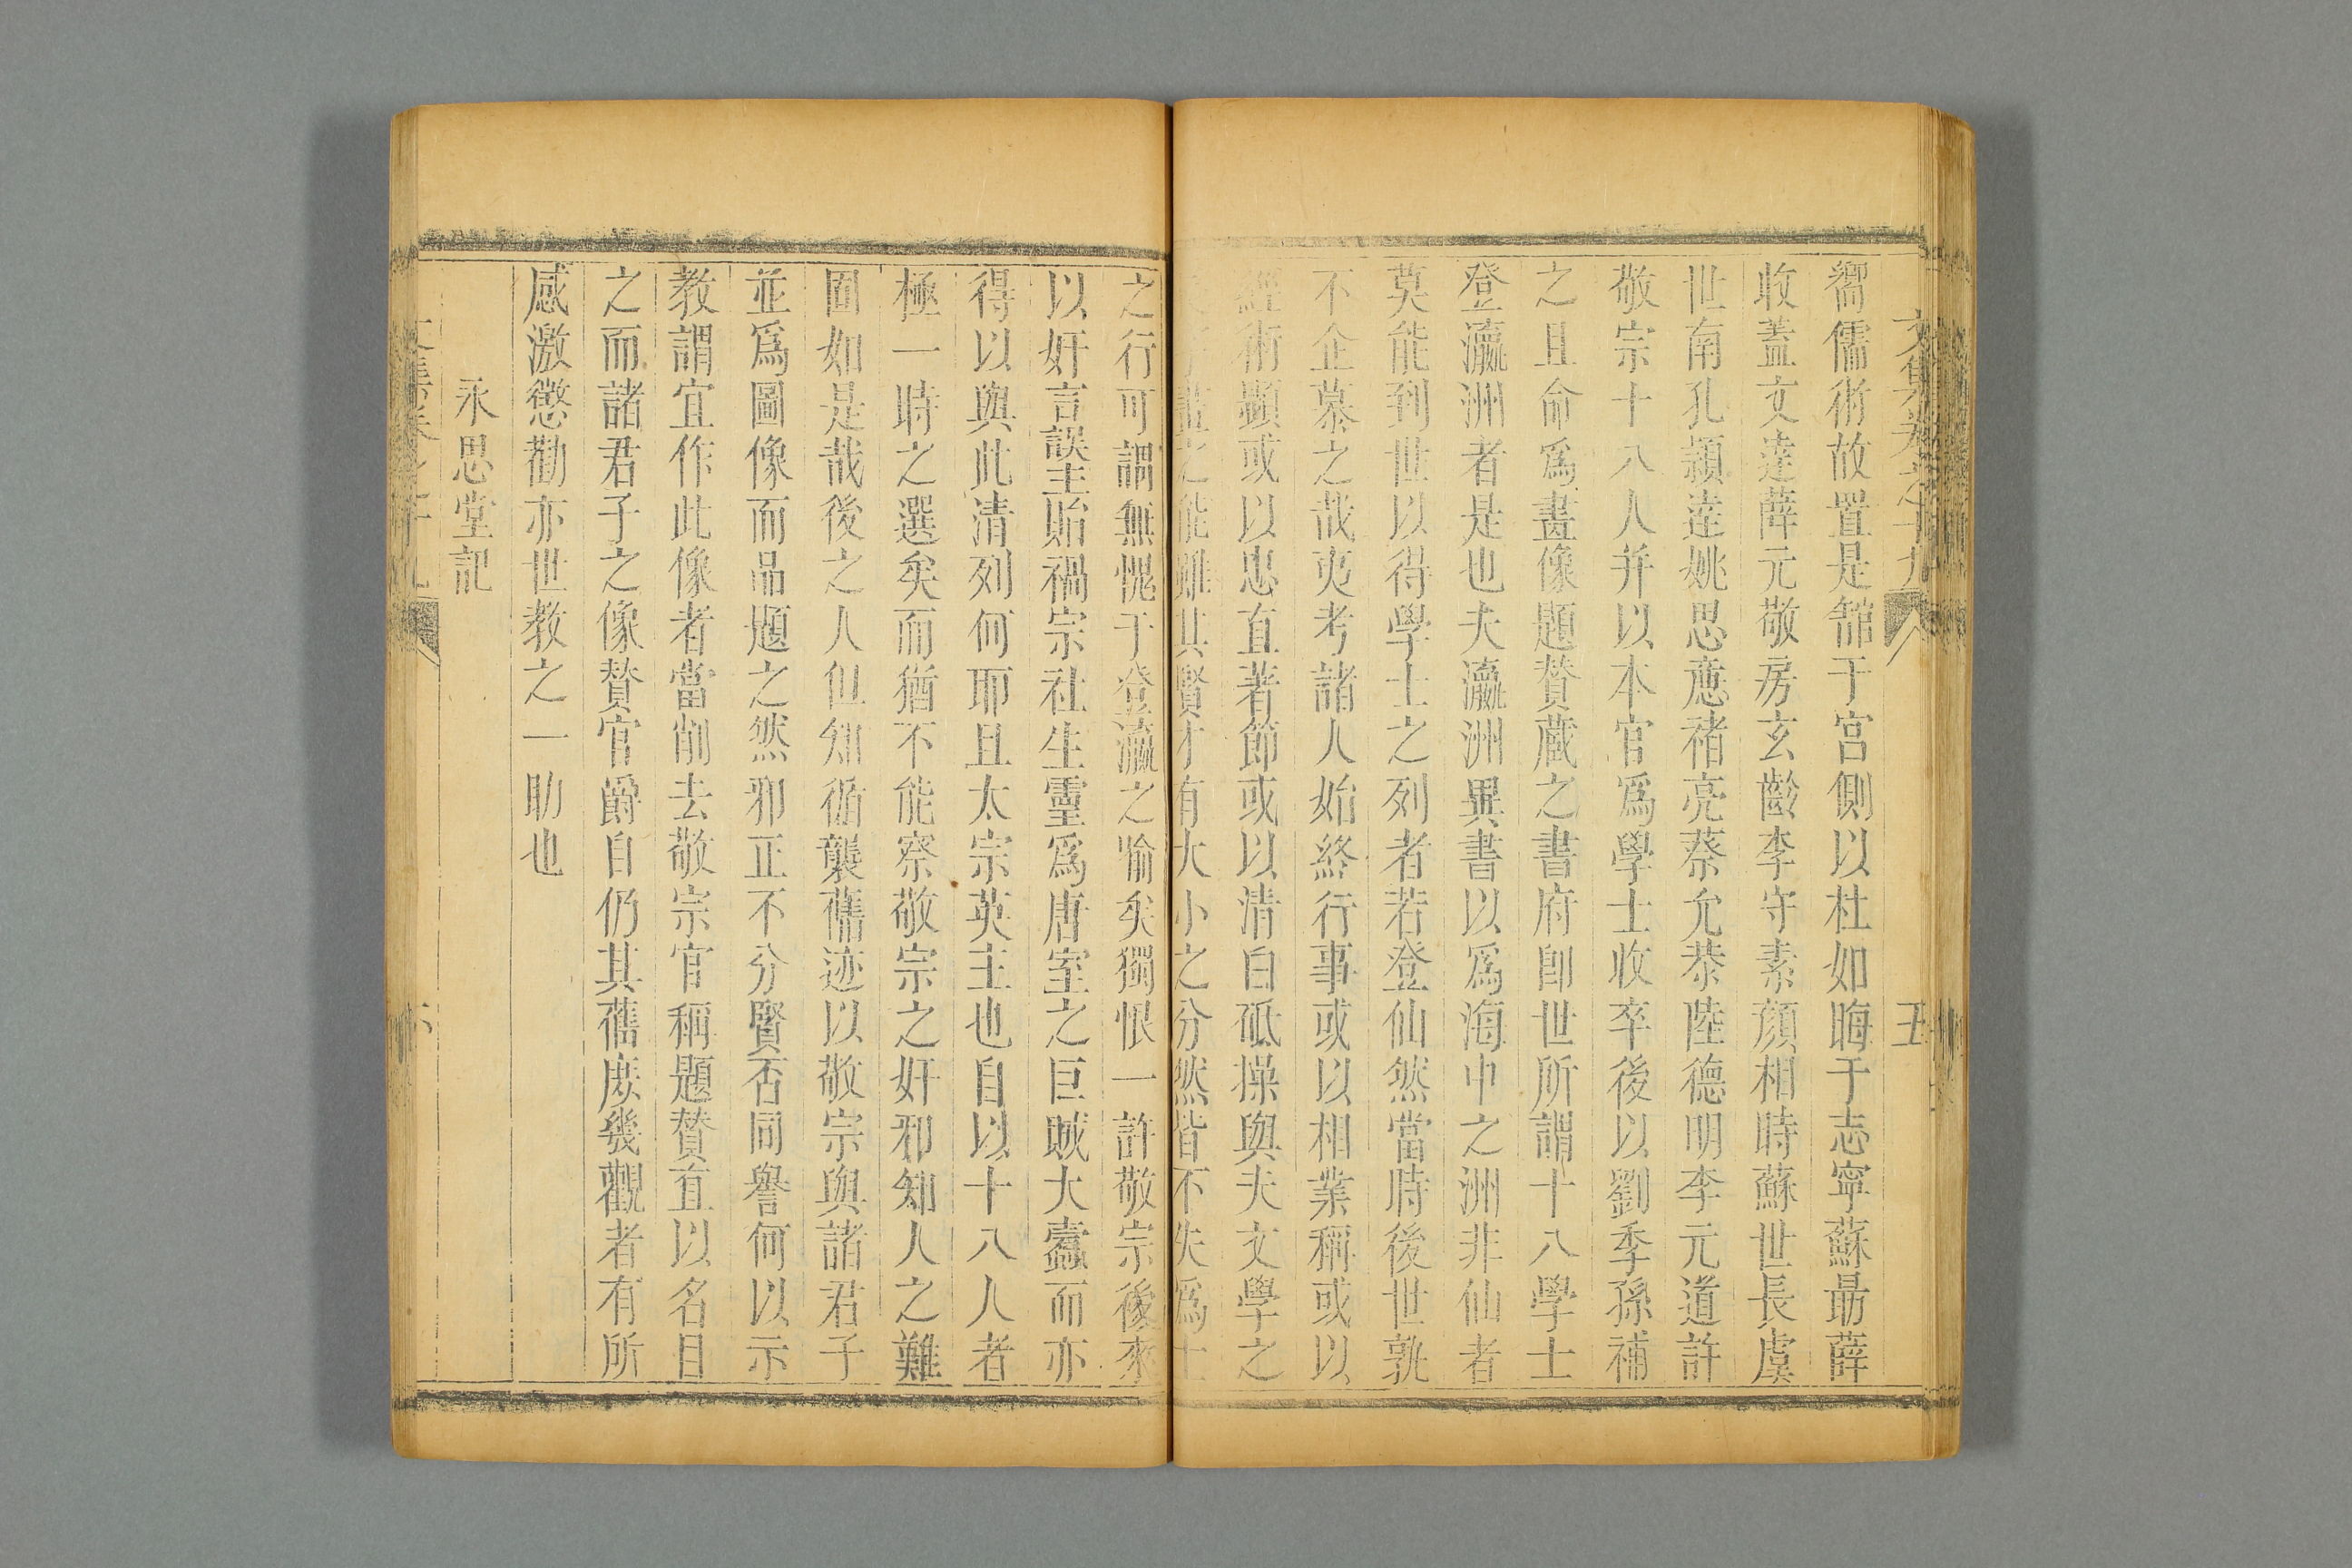 文集卷之十九
五
嚮儒術故置是舘于宫側以杜如晦于志寧蘇朂薛
收蓋文逹薛元敬房玄齡李守素顔相時蘇世長虞
世南孔頴逹姚思廉禇亮蔡允恭陸德明李元道許
敬宗十八人并以本官爲學士收卒後以劉季孫補
之且命爲畫像題贊藏之書府卽世所謂十八學士
登瀛洲者是也夫瀛洲異書以爲海中之洲非仙者
莫能到世以得學士之列者若登仙然當時後世孰
不企慕之哉夷考諸人始終行事或以相業稱或以
經術顯或以忠直著節或以清白砥操與夫文學之
書之能雖其賢才有大小之分然皆不失爲士
之行可謂無愧于登瀛之喻矣獨恨一許敬宗後來
以奸言誤主貽禍宗社生靈爲唐室之巨賊大蠹而亦
得以與此清列何耶且太宗英主也自以十八人者
極一時之選矣而猶不能察敬宗之奸邪知人之難
固如是哉後之人但知循襲舊迹以敬宗與諸君子
並爲圖像而品題之然邪正不分賢否同譽何以示
教謂宜作此像者當削去敬宗官稱題贊直以名目
之而諸君子之像贊官爵自仍其舊庶幾觀者有所
感激懲勸亦世教之一助也
永思堂記
六